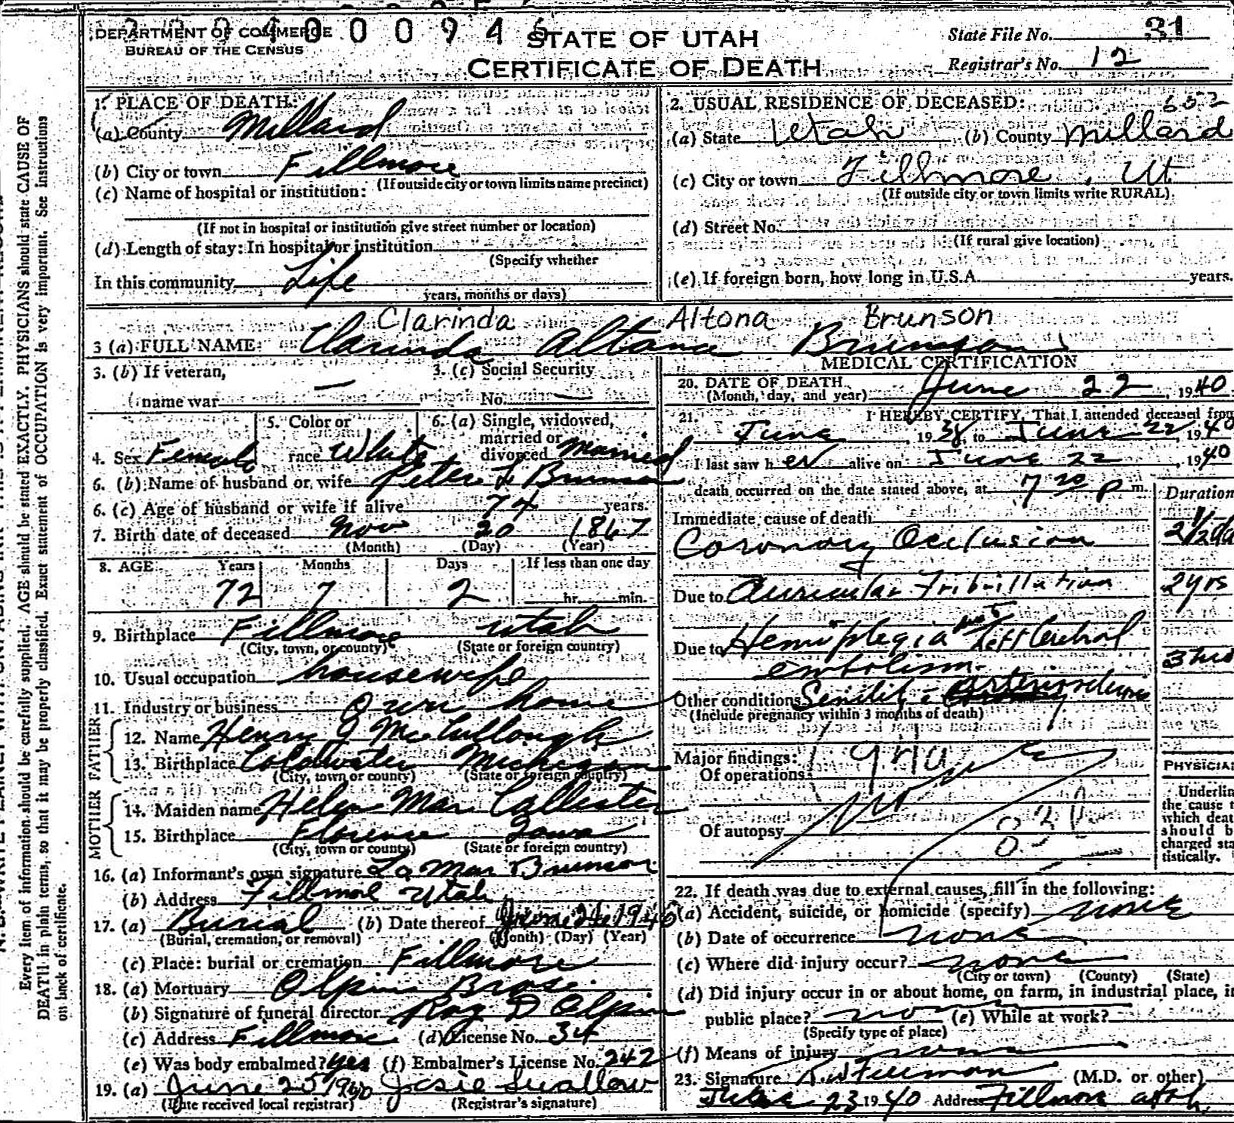 DEPARTMENT OF COMMERCE
BUREAU OF THE CENSUS
STATE OF UTAH
CERTIFICATE OF DEATH
State File No. 31
Registrar's No. 12
1. PLACE OF DEATH:
(a) County Millard
(b) City or town Fillmore
(If outside city or town limits name precinct)
(c) Name of hospital or institution:
(If not in hospital or institution give street number or location)
(d) Length of stay: In hospital or institution
(Specify whether
In this community Life
years, months or days)
2. USUAL RESIDENCE OF DECEASED:
(a) State Utah (b) County Millard
(c) City or town Fillmore, Ut
(If outside city or town limits write RURAL)
(d) Street No.
(If rural give location)
(e) If foreign born, how long in U.S.A. years.
Clarinda Altona Brunson
3 (a) FULL NAME: Clarinda Altona Brunson
3. (b) If veteran,
name war —
3. (c) Social Security
No. —
4. Sex Female
5. Color or
race White
6. (a) Single, widowed,
married or
divorced Married
6. (b) Name of husband or wife Peter L Brunson
6. (c) Age of husband or wife if alive 74 years.
7. Birth date of deceased Nov 20 1867
(Month) (Day) (Year)
8. AGE Years Months Days If less than one day
72 7 2 hr. min.
9. Birthplace Fillmore Utah
(City, town, or county) (State or foreign country)
10. Usual occupation housewife
11. Industry or business Own home
FATHER
12. Name Henry J McCullough
13. Birthplace Coldwater Michigan
(City, town or county) (State or foreign country)
MOTHER
14. Maiden name Helen Mar Callister
15. Birthplace Florence Iowa
(City, town or county) (State or foreign country)
16. (a) Informant's own signature La Mar Brunson
(b) Address Fillmore Utah
17. (a) Burial (b) Date thereof June 1940
(Burial, cremation, or removal) (Month) (Day) (Year)
(c) Place: burial or cremation Fillmore
18. (a) Mortuary Olpin Bros.
(b) Signature of funeral director Roy D Olpin
(c) Address Fillmore (d) License No. 34
(e) Was body embalmed? yes (f) Embalmer's License No. 242
19. (a) June 25 1940 Josie Swallow
(Date received local registrar) (Registrar's signature)
MEDICAL CERTIFICATION
20. DATE OF DEATH June 22, 1940
(Month, day, and year)
21. I HEREBY CERTIFY, That I attended deceased from
June, 1938 to June 22, 1940
I last saw her alive on June 22, 1940
death occurred on the date stated above, at 7 20 P m.
Duration
Immediate cause of death
Coronary Occlusion 2 1/2 da
Due to Auricular Fibrillation 2 yrs
Due to Hemiplegia Left Cerebral
embolism
Other conditions
(Include pregnancy within 3 months of death)
Major findings:
Of operations
Of autopsy
PHYSICIAN
Underline
the cause t
which deat
should b
charged sta
tistically.
22. If death was due to external causes, fill in the following:
(a) Accident, suicide, or homicide (specify) none
(b) Date of occurrence none
(c) Where did injury occur? none
(City or town) (County) (State)
(d) Did injury occur in or about home, on farm, in industrial place, in
public place? none (e) While at work?
(Specify type of place)
(f) Means of injury none
23. Signature (M.D. or other)
23 1940 Address Fillmore Utah
Every item of information should be carefully supplied. AGE should be stated EXACTLY. PHYSICIANS should state CAUSE OF
DEATH in plain terms, so that it may be properly classified. Exact statement of OCCUPATION is very important. See instructions
on back of certificate.